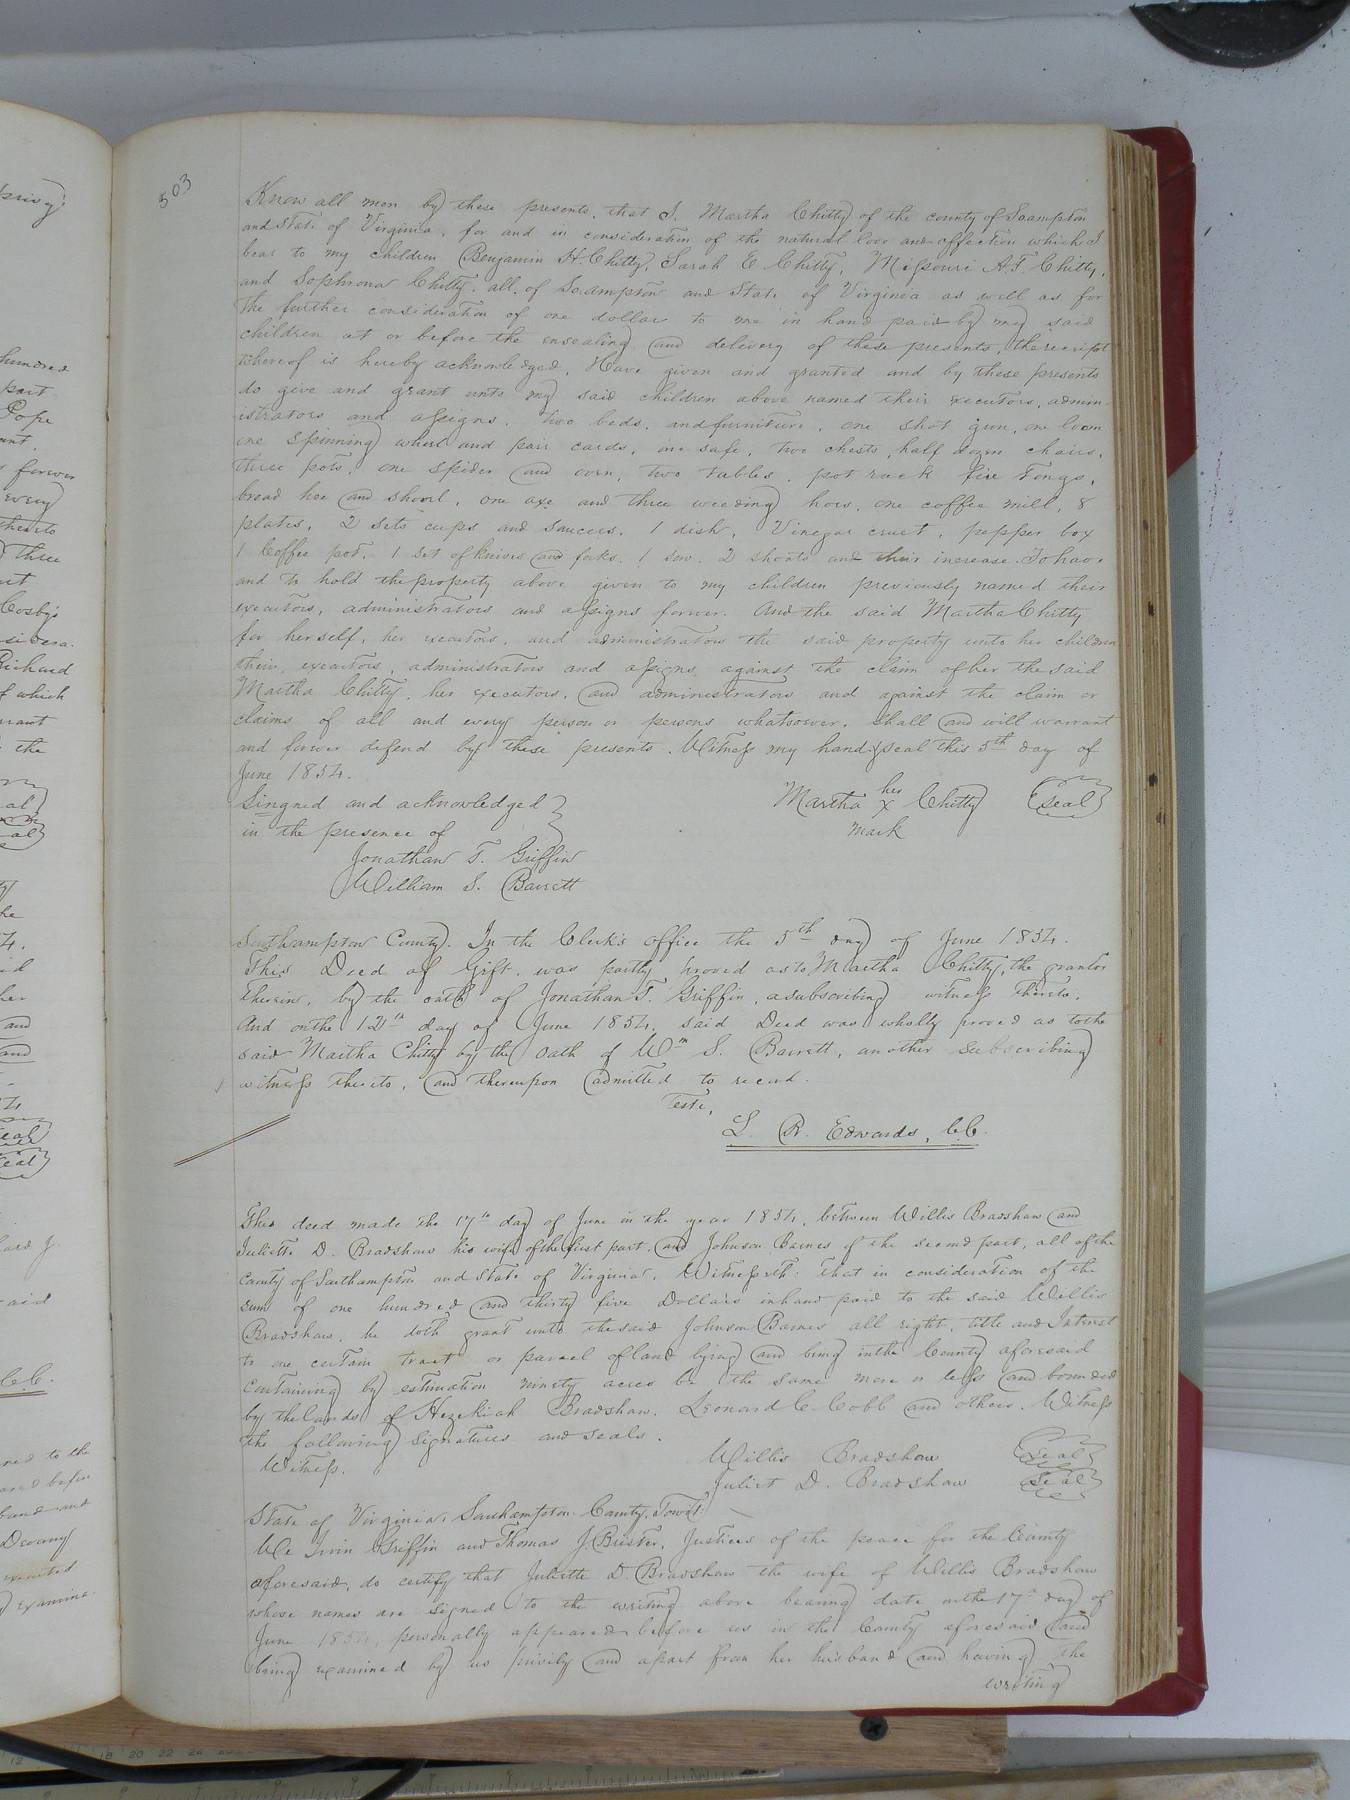 503
Know all men by these presents, that I, Martha Chitty of the county of Soampton
and State of Virginia, for and in consideration of the natural love and affection which I
bear to my children Benjamin H. Chitty, Sarah E Chitty, Missouri A.F. Chitty,
and Sophrona Chitty, all of Soampton and State of Virginia as well as for
the further consideration of one dollar to me in hand paid by my said
children at or before the ensealing and delivery of these presents, the receipt
whereof is hereby acknowledged, Have given and granted and by these presents
do give and grant unto my said children above named their executors, admin-
istrators and assigns, two beds, and furniture, one shot gun, one loom
one spinning wheel and pair cards, one safe, two chests, half dozen chairs,
three pots, one spider and oven, two tables, pot rack fire tongs,
bread hoe and shovel, one axe and three weeding hoes, one coffee mill, 8
plates, 2 sets cups and saucers, 1 dish, Vinegar cruet, pepper box
1 Coffee pot, 1 set of knives and forks, 1 sow, 2 shoats and their increase. To have
and to hold the property above given to my children previously named their
executors, administrators and assigns forever. And the said Martha Chitty
for herself, her executors, and administrators the said property unto her children
their, executors, administrators and assigns against the claim of her the said
Martha Chitty, her executors, and administrators and against the claim or
claims of all and every person or persons whatsoever, shall and will warrant
and forever defend by these presents. Witness my hand & seal this 5th day of
June 1854.
Singned and acknowledged
in the presence of
Jonathan T. Griffin
William S. Barrett
Martha her x Chitty Seal
mark
Southampton County. In the Clerk's office the 5th day of June 1854.
This Deed of Gift was partly proved as to Martha Chitty, the grantor
therein, by the oath of Jonathan T. Griffin, a subscribing witness thereto,
And on the 12th day of June 1854, said Deed was wholly proved as to the
said Martha Chitty by the oath of Wm S. Barrett, another subscribing
witness thereto, and thereupon admitted to record.
Teste,
L. R. Edwards, C.C.
This deed made the 17th day of June in the year 1854, between Willis Bradshaw and
Juliette D. Bradshaw his wife of the first part, and Johnson Barnes of the second part, all of the
County of Southampton and State of Virginia, Witnesseth: that in consideration of the
sum of one hundred and thirty five Dollars in hand paid to the said Willis
Bradshaw, he doth grant unto the said Johnson Barnes all right, title and Interest
to one certain tract or parcel of land lying and being in the County aforesaid
containing by estimation ninety acres be the same more or less and bounded
by the lands of Hezekiah Bradshaw, Leonard C. Cobb and others. Witness
the following signatures and seals.
Witness.
Willis Bradshaw Seal
Juliet D. Bradshaw Seal
State of Virginia, Southampton County, Towit:
We Irvin Griffin and Thomas J. Bister, Justices of the peace for the County
aforesaid, do certify that Juliette D. Bradshaw the wife of Willis Bradshaw
whose names are signed to the writing above bearing date on the 17th day of
June 1854, personally appeared before us in the County aforesaid and
being examined by us privily and apart from her husband and having the
writing